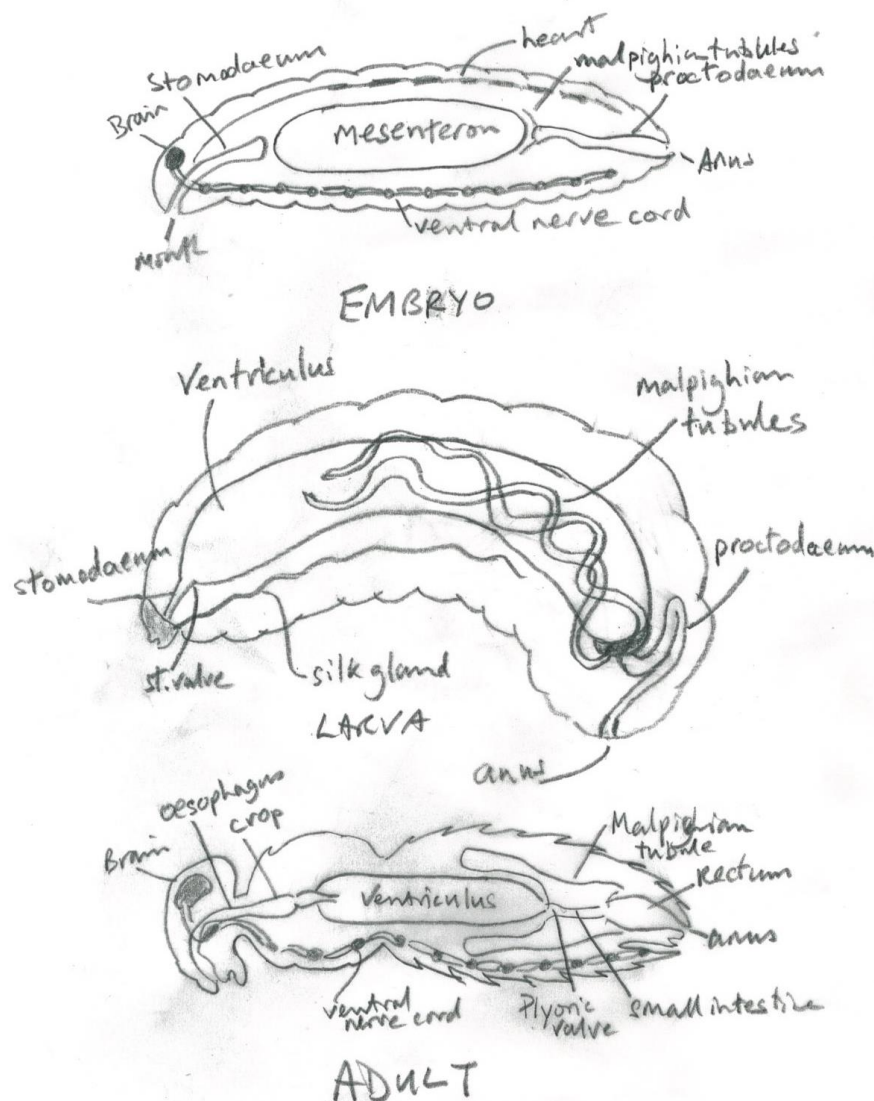 heart
malpighian tubules
proctodaeum
stomodaeum
Brain
Mesenteron
Anus
ventral nerve cord
Mouth
EMBRYO
Ventriculus
malpighian
tubules
stomodaeum
proctodaeum
st.valve
silk gland
LARVA
anus
oesophagus
crop
Brain
Malpighian
tubule
Rectum
Ventriculus
anus
ventral
nerve cord
Plyoric
valve
small intestine
ADULT